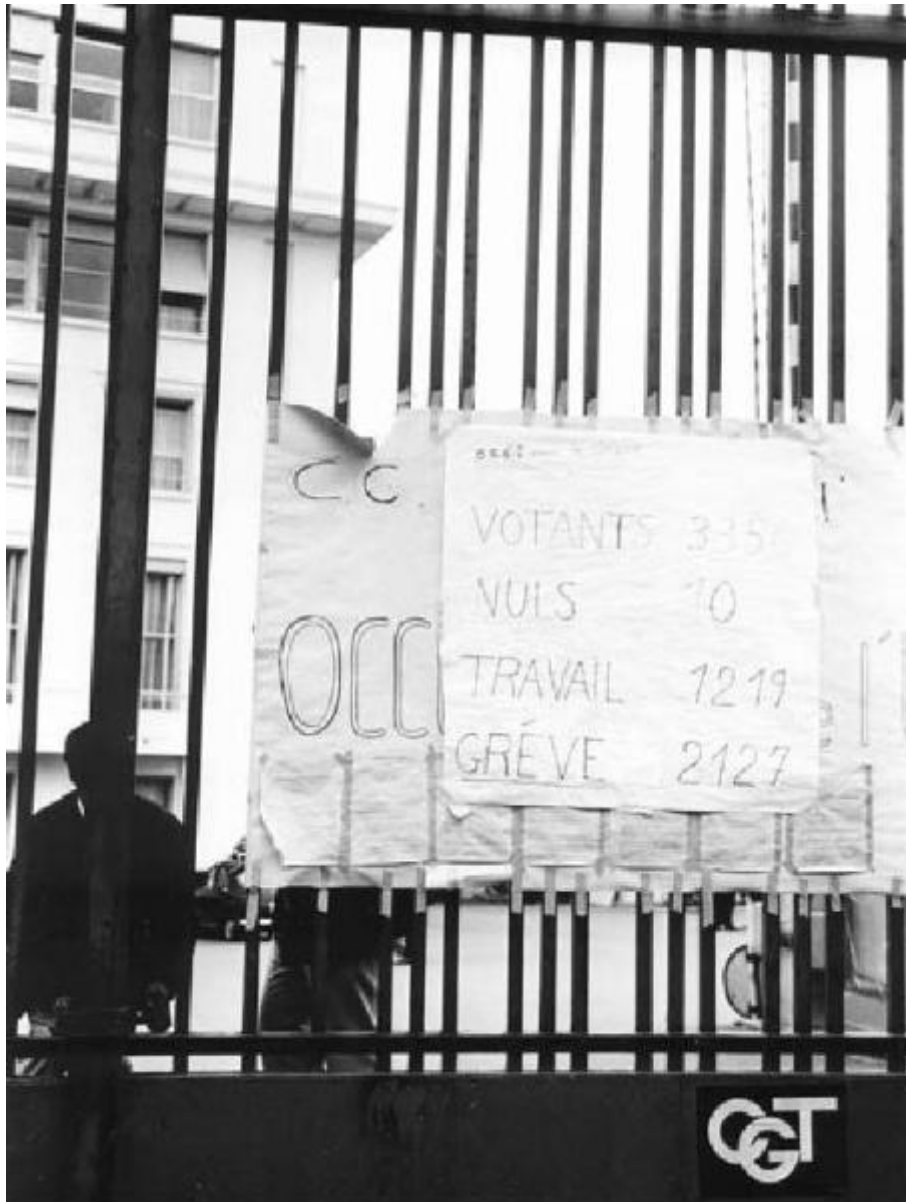 C C
OCC
VOTANTS 335
NULS 10
TRAVAIL 1219
GRÉVE 2127
l'
CGT